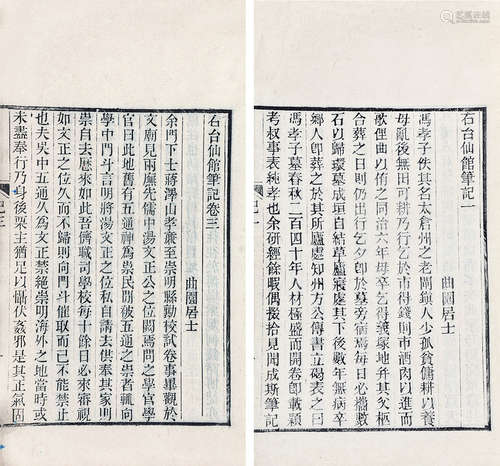 右台仙館筆記一
曲園居士
馮孝子佚其名太倉州之老閘鎮人少孤貧傭耕以養
母亂後無田可耕乃行乞於市得錢則市酒肉以進而
歌俚曲以侑之同治六年母卒乞得義塚地幷其父柩
合葬之日則仍出行乞夕卽於墓旁焉每日必攜數
石以歸環墓成垣自結草廬寢處其下後數年無病卒
鄉人卽葬之於其所廬處知州方公傳書立碣表之曰
馮孝子墓春秋二百四十年人材極盛而開卷卽載穎
考叔事表純孝也余研經餘暇偶掇拾見聞成斯筆記
右台仙館筆記卷三
曲園居士
余門下士蔣澤山孝廉至崇明縣勷校試卷事畢觀於
文廟見兩廡先儒中湯文正公之位闕焉問之學官學
官曰此地舊有五通神爲祟民閒被五通之祟者輒向
學中門斗言明將湯文正之位私自請去供奉其家則
祟自去歷來如此吾儕職司學校每十餘日必來審視
如文正之位久而不歸則向門斗催取而已不能禁止
也夫吳中五通久爲文正禁絕崇明海外之地當時或
未盡奉行乃身後栗主猶足以懾伏姦邪是其正氣固